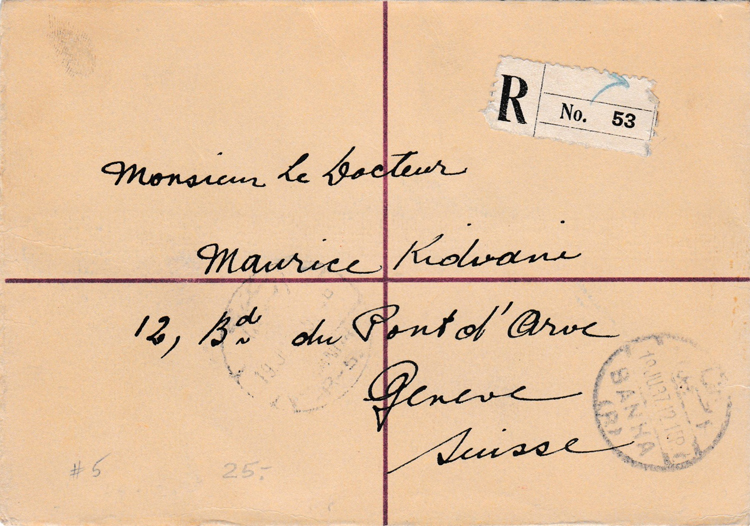 R No. 53
Monsieur Le Docteur
Maurice Kidvani
12, Bd. du Pont d'Arve
Geneve
Suisse
BANHA
(R)
#5 25.-